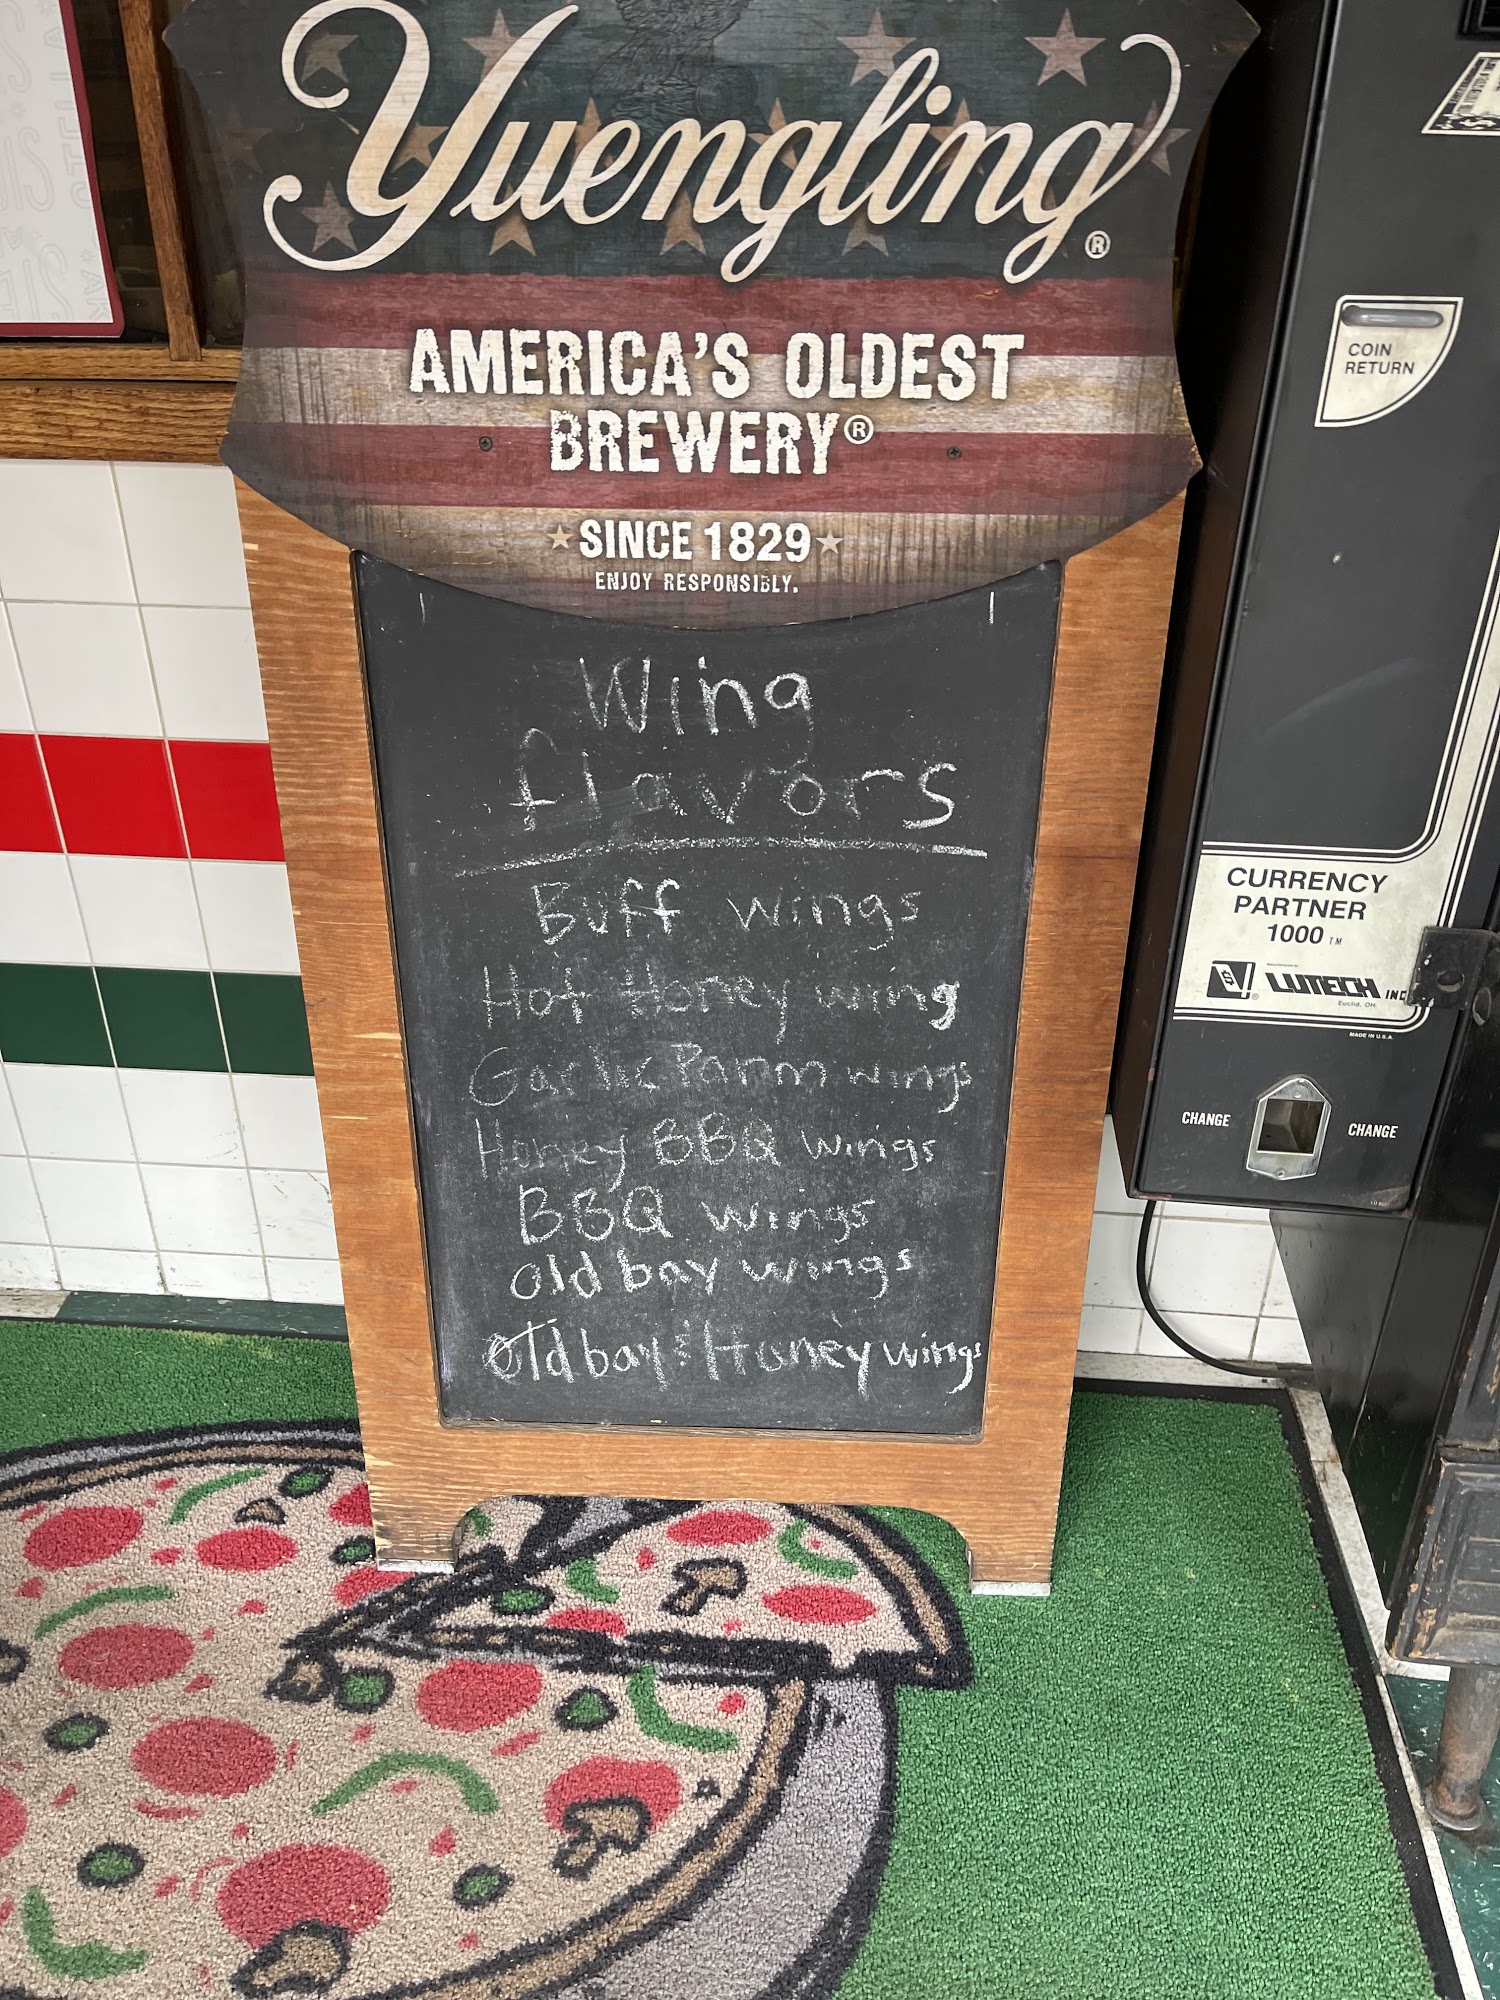 Yuengling®
AMERICA'S OLDEST
BREWERY®
SINCE 1829
ENJOY RESPONSIBLY.
Wing
flavors
Buff wings
Hot Honey wing
Garlic Parm wings
Honey BBQ wings
BBQ wings
old bay wings
Old bay & Honey wings
COIN
RETURN
CURRENCY
PARTNER
1000 TM
LUTECH INC
Euclid, OH.
MADE IN U.S.A.
CHANGE
CHANGE